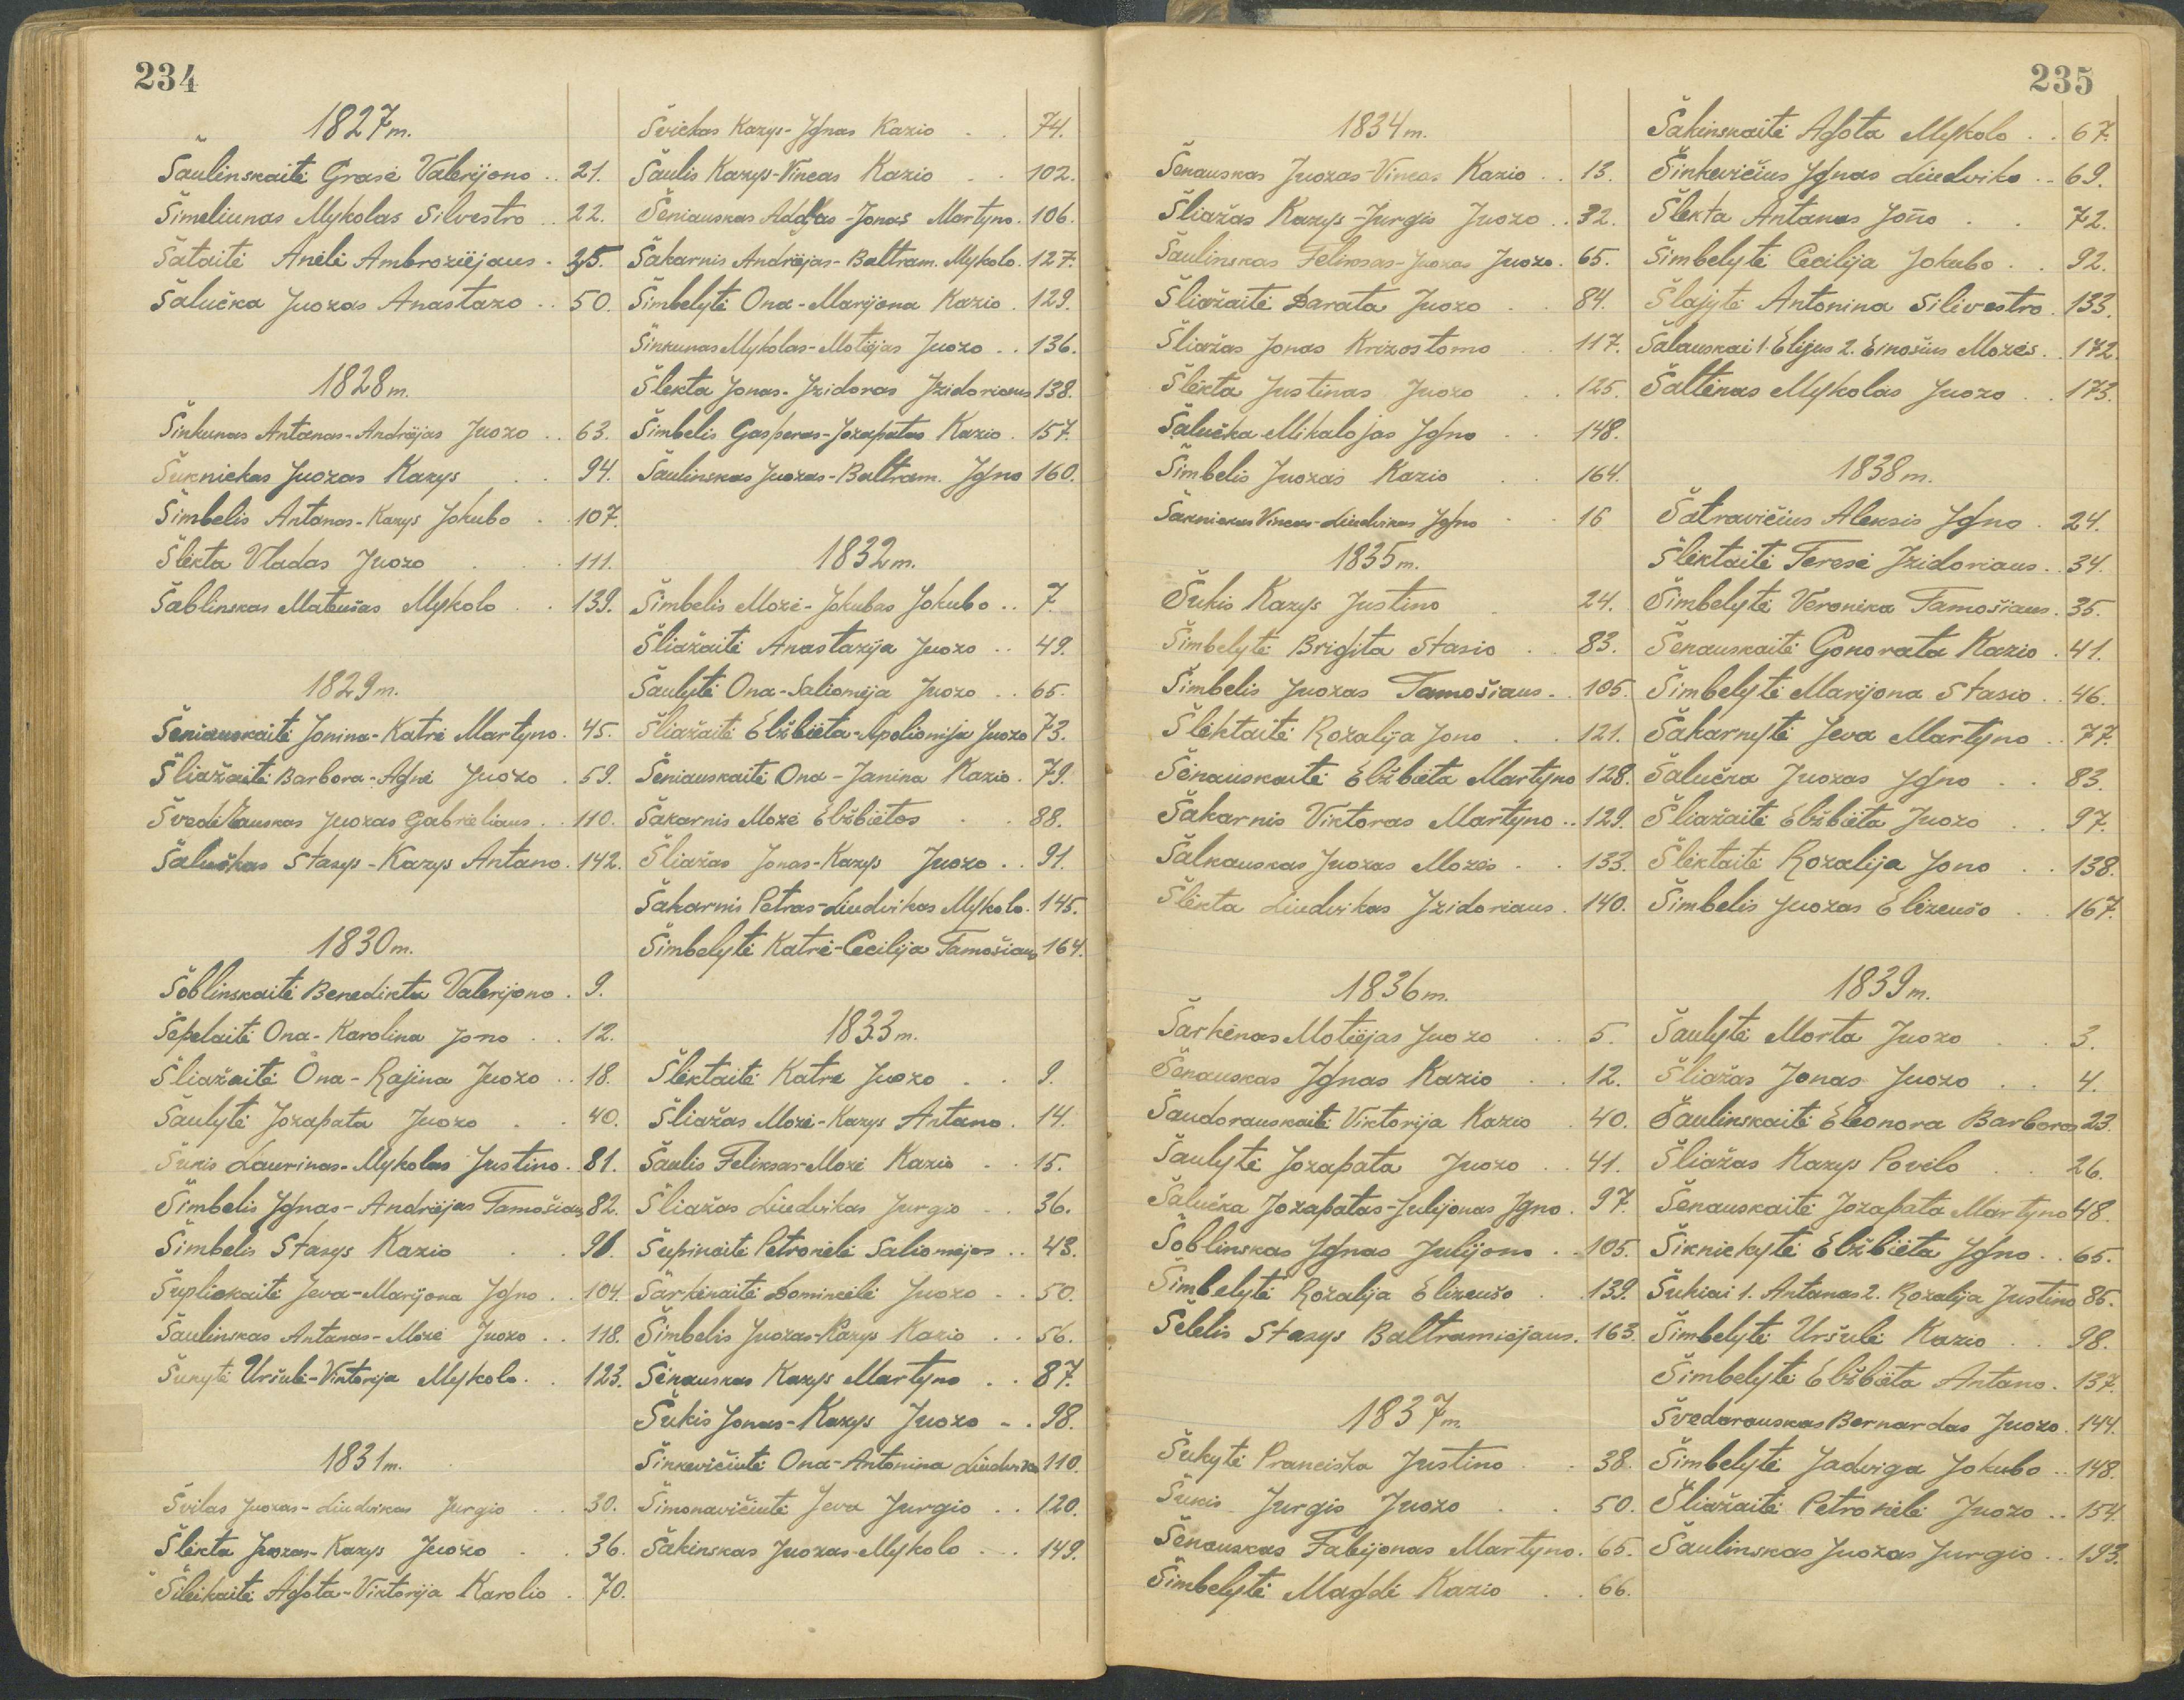 234
1827 m.
Šaulinskaitė Grasė Valerijono . . 21.
Šimeliunas Mykolas Silvestro . . 22.
Šataitė Anėlė Ambroziejaus . 25.
Šalučka Juozas Anastazo . . 50.
1828 m.
Šinkunas Antanas-Andriejas Juozo . . 63.
Šukniekas Juozas Kazys . . 94.
Šimbelis Antanas-Kazys Jokubo . . 107.
Šlekta Vladas Juozo . . . 111.
Šablinskas Mateušas Mykolo . . 139.
1829 m.
Šeniauskaitė Jonina-Katrė Martyno . 45.
Šliažaitė Barbora-Agnė Juozo . 59.
Juozas Gabrieliaus . . 110.
Šalučkas Stasys-Kazys Antano . 142.
1830 m.
Šoblinskaitė Benedikta Valerijono . 9.
Šepelaitė Ona-Karolina Jono . . 12.
Šliažaitė Ona-Rajina Juozo . . 18.
Šaulytė Jozapata Juozo . . 40.
Šukis Laurinas-Mykolas Justino . 81.
Šimbelis Ignas-Andriejas Tamošiaus 82.
Šimbelis Stasys Kazio . . 91.
Šupliokaitė Jeva-Marijona Igno . . 104.
Šaulinskas Antanas-Mozė Juozo . . 118.
Šunytė Uršulė-Viktorija Mykolo . . 123.
1831 m.
Švilas Juozas-Liudvikas Jurgio . . 30.
Šlekta Juozas-Kazys Juozo . . 36.
Šileikaitė Agota-Viktorija Karolio . 70.
Švickas Kazys-Ignas Kazio . . 74.
Šaulis Kazys-Vincas Kazio . . 102.
Šeniauskas -Jonas Martyno . 106.
Šakarnis Andriejas-Baltram. Mykolo . 127.
Šimbelytė Ona-Marijona Kazio . 129.
Šinkunas Mykolas-Motiejas Juozo . . 136.
Šlekta Jonas-Izidoras Izidoriaus 138.
Šimbelis Gasperas-Jozapatas Kazio . 157.
Šaulinskas Juozas-Baltram. Igno 160.
1832 m.
Šimbelis Mozė-Jokubas Jokubo . . 7.
Šliažaitė Anastazija Juozo . . 49.
Šaulytė Ona-Saliomėja Juozo . . 65.
Šliažaitė Elžbieta-Apolionija Juozo 73.
Šeniauskaitė Ona-Janina Kazio . 79.
Šakarnis Mozė Elžbietos . . 88.
Šliažas Jonas-Kazys Juozo . . 91.
Šakarnis Petras-Liudvikas Mykolo . 145.
Šimbelytė Katrė-Cecilija Tamošiaus 164.
1833 m.
Šlektaitė Katrė Juozo . . 9.
Šliažas Mozė-Kazys Antano . 14.
Šaulis Feliksas-Mozė Kazio . . 15.
Šliažas Liudvikas Jurgio . . 36.
Šupinaitė Petronėlė Saliomėjos . . 43.
Šarkėnaitė Domincėlė Juozo . . 50.
Šimbelis Juozas-Kazys Kazio . . 56.
Šėnauskas Kazys Martyno . . 87.
Šukis Jonas-Kazys Juozo . . 98.
Šinkevičiutė Ona-Antonina Liudviko 110.
Šimonavičiutė Jeva Jurgio . . 120.
Šakinskas Juozas-Mykolo . . 149.
235
1834 m.
Šenauskas Juozas-Vincas Kazio . . 13.
Šliažas Kazys-Jurgis Juozo . . 32.
Šaulinskas Feliksas-Juozas Juozo . 65.
Šliažaitė Darata Juozo . . 84.
Šliažas Jonas Krizostomo . . 117.
Šlekta Justinas Juozo . . 125.
Šalučka Mikalojas Igno . . 148.
Šimbelis Juozas Kazio . . 164.
Šakniekas Vincas-Liudvikas Igno . . 16
1835 m.
Šukis Kazys Justino . 24.
Šimbelytė Brigita Stasio . . 83.
Šimbelis Juozas Tamošiaus . . 105.
Šlektaitė Rozalija Jono . . 121.
Šėnauskaitė Elžbieta Martyno 128.
Šakarnis Viktoras Martyno . . 129.
Šalkauskas Juozas Mozės . . 133.
Šlekta Liudvikas Izidoriaus . 140.
1836 m.
Šarkėnas Motiejas Juozo . . 5.
Šenauskas Ignas Kazio . . 12.
Šaudorauskaitė Viktorija Kazio . 40.
Šaulytė Jozapata Juozo . . 41.
Šalučka Jozapatas-Julijonas Igno . 97.
Šoblinskas Ignas Julijono . . 105.
Šimbelytė Rožalija Elizeušo . . 139.
Šėlelis Stasys Baltramiejaus . 163.
1837 m.
Šukytė Pranciška Justino . . 38.
Šukis Jurgis Juozo . . 50.
Šenauskas Fabijonas Martyno . 65.
Šimbelytė Magdė Kazio . . 66.
Šakinskaitė Agota Mykolo . . 67.
Šinkevičius Ignas Liudviko . . 69.
Šlekta Antanas Jono . . 72.
Šimbelytė Cecilija Jokubo . . 92.
Šlajytė Antonina Silivestro . 133.
Šalauskai 1. Elijus 2. Enošius Mozės . . 172.
Šaltėnas Mykolas Juozo . . 173.
1838 m.
Šatravičius Aleksis Igno . 24.
Šlektaitė Teresė Izidoriaus . . 34.
Šimbelytė Veronika Tamošiaus . 35.
Šenauskaitė Gonorata Kazio . 41.
Šimbelytė Marijona Stasio . . 46.
Šakarnytė Jeva Martyno . . 77.
Šalučka Juozas Igno . . 83.
Šliažaitė Elžbieta Juozo . . 97.
Šlektaitė Rozalija Jono . . 138.
Šimbelis Juozas Elizeušo . . 167.
1839 m.
Šaulytė Morta Juozo . . 3.
Šliažas Jonas Juozo . . 4.
Šaulinskaitė Eleonora Barboros 23.
Šliažas Kazys Povilo . . 26.
Šenauskaitė Jozapata Martyno 48.
Šikniekytė Elžbieta Igno . . 65.
Šukiai 1. Antanas 2. Rozalija Justino 85.
Šimbelytė Uršulė Kazio . . 98.
Šimbelytė Elžbieta Antano . 137.
Švedarauskas Bernardas Juozo . 144.
Šimbelytė Jadviga Jokubo . . 148.
Šliažaitė Petronėlė Juozo . . 154.
Šaulinskas Juozas Jurgio . . 193.